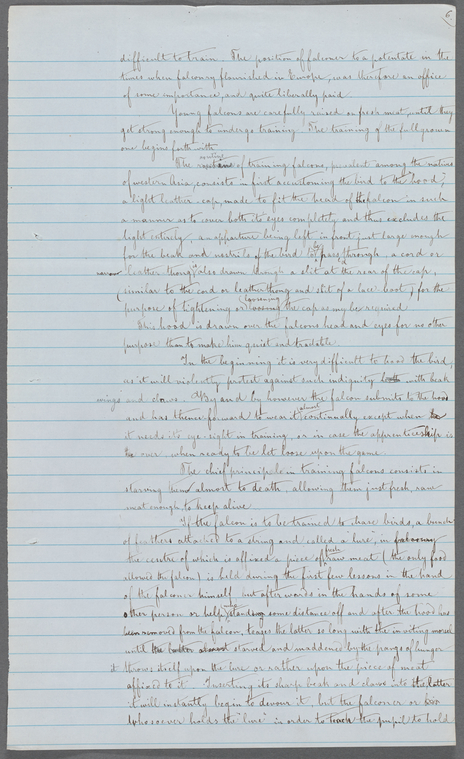 6
difficult to train. The position of falconer to a potentate in the
times when falconry flourished in Europe, was therefore an office
of some importance, and quite liberally paid.
Young falcons are carefully raised on fresh meat, until they
get strong enough to undergo training. The training of the full grown
one begins forth with
The routine of training falcons, prevalent among the natives
of western Asia, consists in first accustoming the bird to the "hood";
a light leather cap, made to fit the head of the falcon in such
a manner as to cover both its eyes completely, and thus excludes the
light entirely, an apparture being left in front, just large enough
for the beak and nostrils of the bird to pass through, a cord or
narrow leather thong, also drawn through a slit at the rear of the cap,
(similar to the cord or leather thong and slit of a lace boot), for the
purpose of tightening or loosening the cap as may be required.
This hood is drawn over the falcons head and eyes for no other
purpose than to make him quiet and tractable.
In the beginning it is very difficult to hood the bird,
as it will violently protest against such indignity with beak
wings and claws. By and by however the falcon submits to the hood
and has thence forward to wear it almost continually except when
it needs its eye-sight in training, or in case the apprenticeship is
over when ready to be let loose upon the game.
The chief principle in training falcons consists in
starving them almost to death, allowing them just fresh, raw
meat enough, to keep alive.
If the falcon is to be trained to share birds, a bunch
of feathers attached to a string and called a lure, in
the centre of which is affixed a piece of fresh raw meat (the only food
allowed the falcon) is held during the first few lessons in the hand
of the falconer himself but afterwords in the hands of some
other person or help, standing some distance off and after the hood has
been removed from the falcon, tease the latter so long with the inviting morsel
until starved and maddened by the pangs of hunger
it throws itself upon the lure or rather upon the piece of meat
affixed to it. Inserting its sharp beak and claws into the latter
it will instantly begin to devour it, but the falconer or
whosoever holds the "lure" in order to teach the pupil to hold